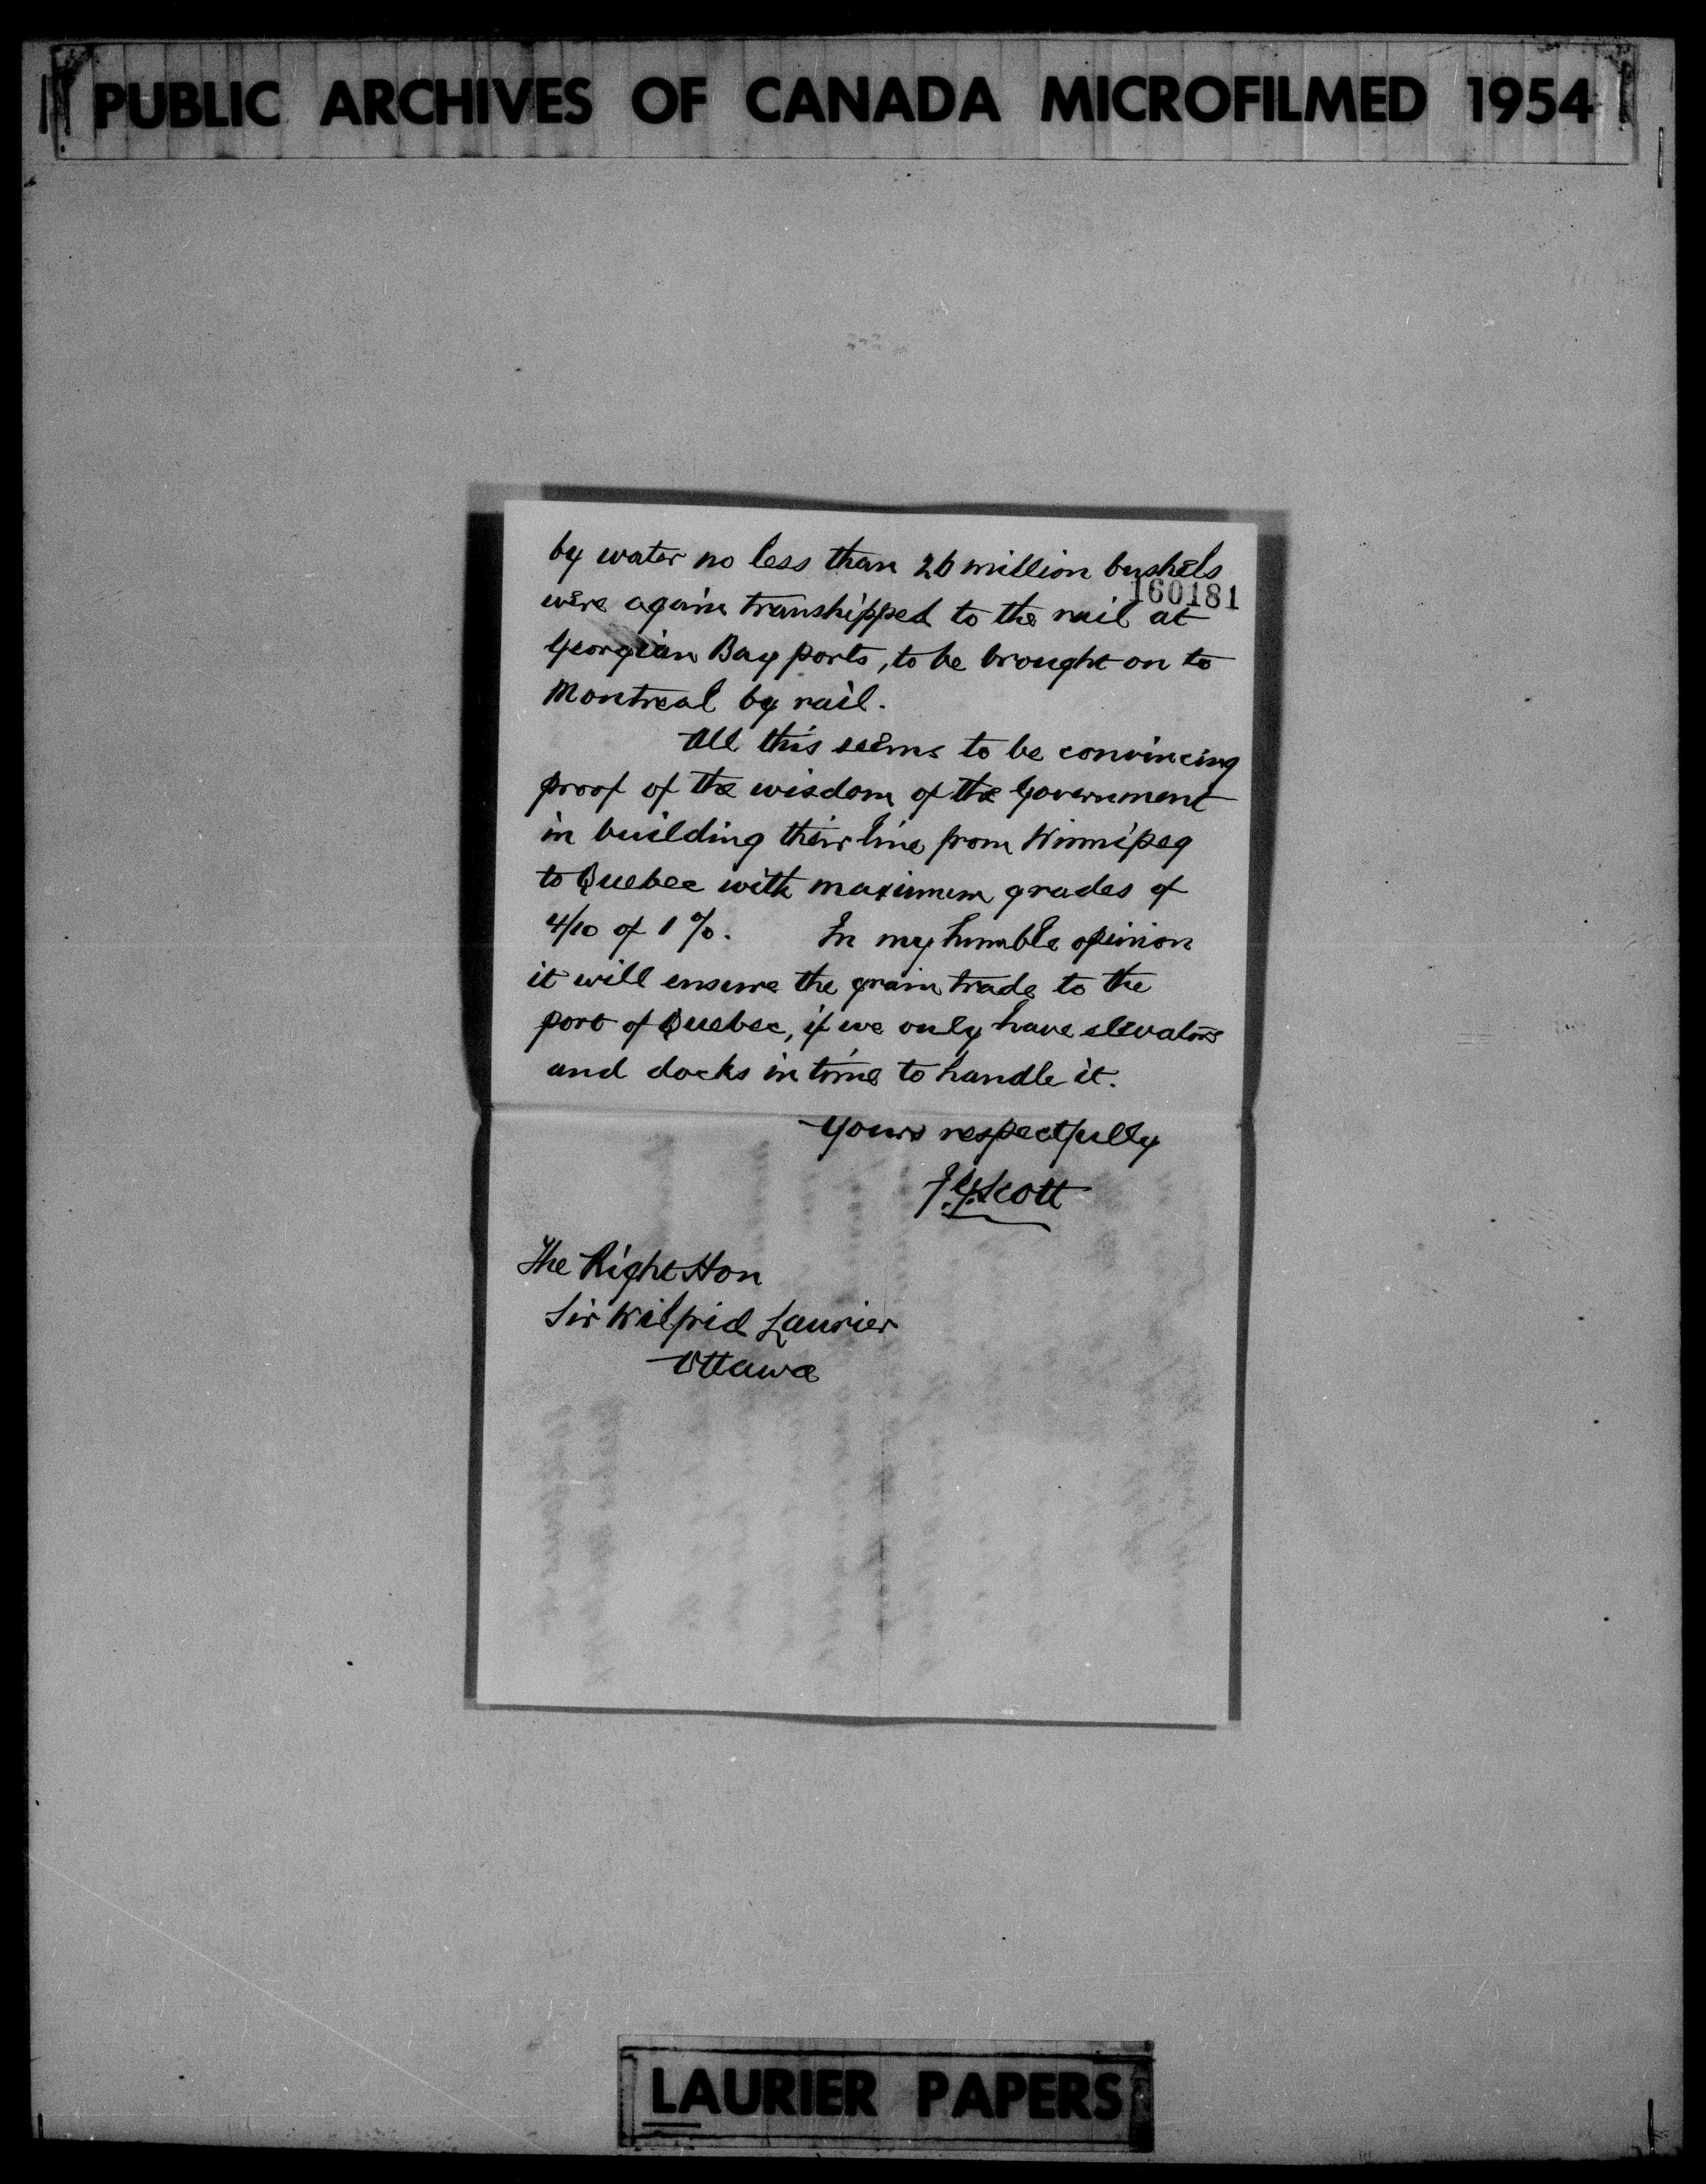 PUBLIC ARCHIVES OF CANADA MICROFILMED 1954
by water no less than 26 million bushels
160181
were again transhipped to the rail at
Georgian Bay ports, to be brought on to
Montreal by rail.
All this seems to be convincing
proof of the wisdom of the Government
in building their line from Winnipeg
to Quebec with maximum grades of
4/10 of 1%. In my humble opinion
it will ensure the grain trade to the
port of Quebec, if we only have elevators
and docks in time to handle it.
Yours respectfully
J.G. Scott
The Right Hon
Sir Wilfrid Laurier
Ottawa
LAURIER PAPERS